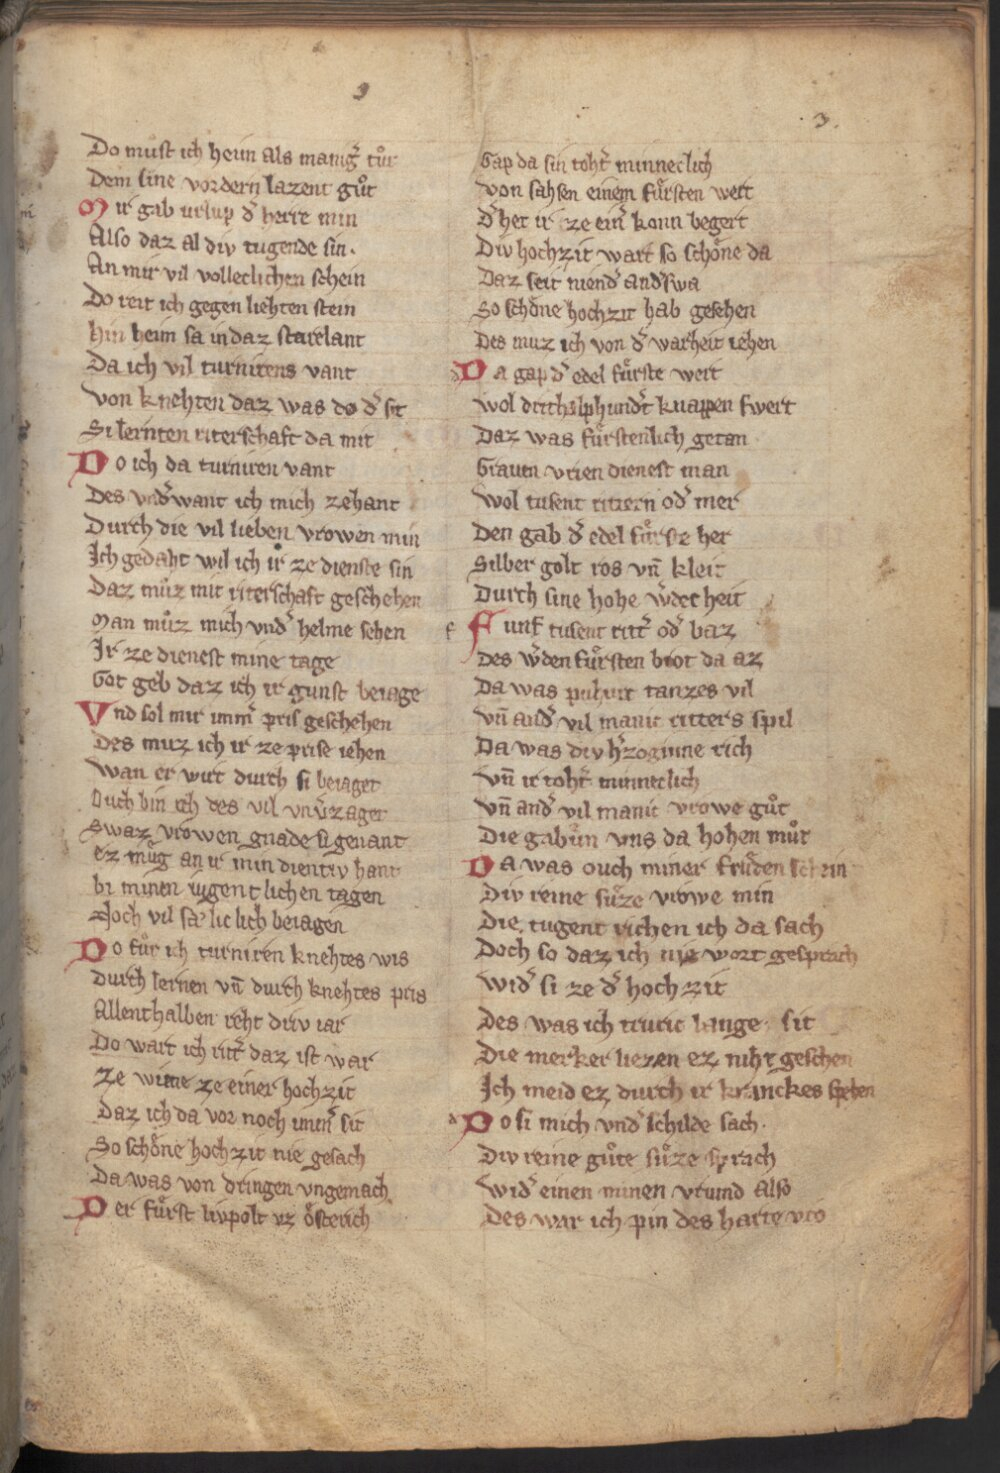 3.
Do muͦst ich heim als manig̾ tuͦt
Dem sine vordern lazent guͦt
Mir gab urlup d̾ herre min
Also daz al div tugende sin.
An mir vil volleclichen schein
Do reit ich gegen liehten stein
hin heim sa in daz stirelant
Da ich vil turnirens vant
Von knehten daz was do d̾ sit
Si lernten riterschaft da mit
Do ich da turniren vant
Des vnd̾want ich mich zehant
Durch die vil lieben vrowen min
Ich gedaht wil ich ir ze dienste sin
Daz muͦz mit riterschaft geschehen
Man muͦz mich vnd̾ helme sehen
Ir ze dienest mine tage
Got geb daz ich ir gunst beiage
Vnd sol mir imm̾ pris geschehen
Des muz ich ir ze prise iehen
Wan er wirt durch si beiaget
Ouch bin ich des vil vnv̾zaget
Swaz vrowen gnade si genant
ez muͦg an ir min dientiv hant
bi minen iugentlichen tagen
Noch vil sæliclich beiagen
Do fuͦr ich turniren knehtes wis
Durch lernen vn̄ durch knehtes pris
Allenthalben reht driv iar
Do wart ich ritt̾ daz ist war
ze wine ze einer hochzit
Daz ich da vor noch imm̾ sit
So schoͤne hochzit nie gesach
Da was von dringen vngemach
Der fuͤrst livpolt vz oͤsterich
Gap da sin toht̾ minneclich
Von sahsen einem fuͤrsten wert
d̾ het ir ze ein̾ konn begert
Div hochzit wart so schoͤne da
Daz seit niend̾ and̾swa
So schoͤne hochzit hab gesehen
Des muz ich von d̾ warheit iehen
Da gap d̾ edel fuͤrste wert
Wol drithalphund̾t knappen swert
Daz was fuͤrstenlich getan
Grauen vrien dienest man
Wol tusent rittern od̾ mer
Den gab d̾ edel fuͤrste her
Silber golt ros vn̄ kleit
Durch sine hohe w̾decheit
Funf tusent ritt̾ od̾ baz
Des w̾den fuͤrsten brot da az
Da was puhurt tanzes vil
Vn̄ and̾ vil manic ritters spil
Da was div h̾zoginne rich
Vn̄ ir toht̾ minneclich
Vn̄ and̾ vil manic vrowe guͦt
Die gabun vns da hohen muͦt
Da was ouch miner freuden schin
Div reine suͤze vrowe min
Die tugent richen ich da sach
Doch so daz ich nie wort gesprach
Wid̾ si ze d̾ hochzit
Des was ich truric lange sit
Die merker liezen ez niht geschen
Ich meid ez durch ir kranckes spehen
Do si mich vnd̾ schilde sach.
Div reine guͦte suͤze sprach
Wid̾ einen minen vriund also
Des war ich pin des harte vro